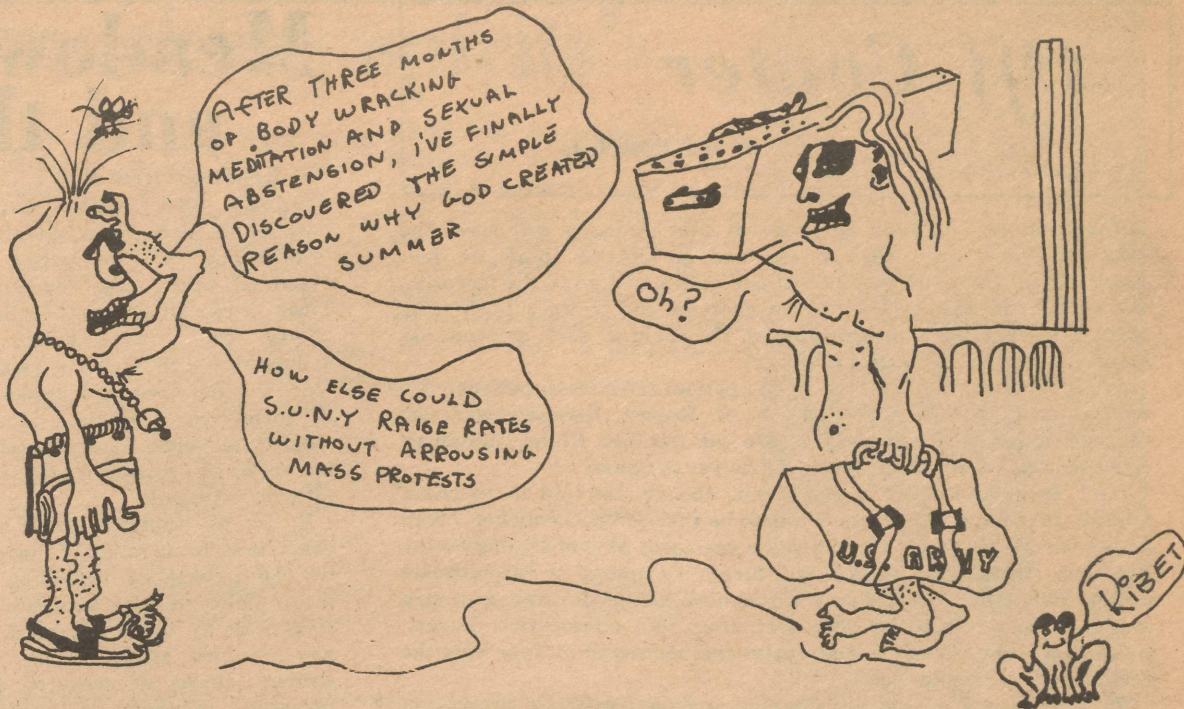 AFTER THREE MONTHS
OF BODY WRACKING
MEDITATION AND SEXUAL
ABSTENSION, I'VE FINALLY
DISCOVERED THE SIMPLE
REASON WHY GOD CREATED
SUMMER
Oh?
HOW ELSE COULD
S.U.N.Y RAISE RATES
WITHOUT ARROUSING
MASS PROTESTS
U.S. ARMY
RIBET